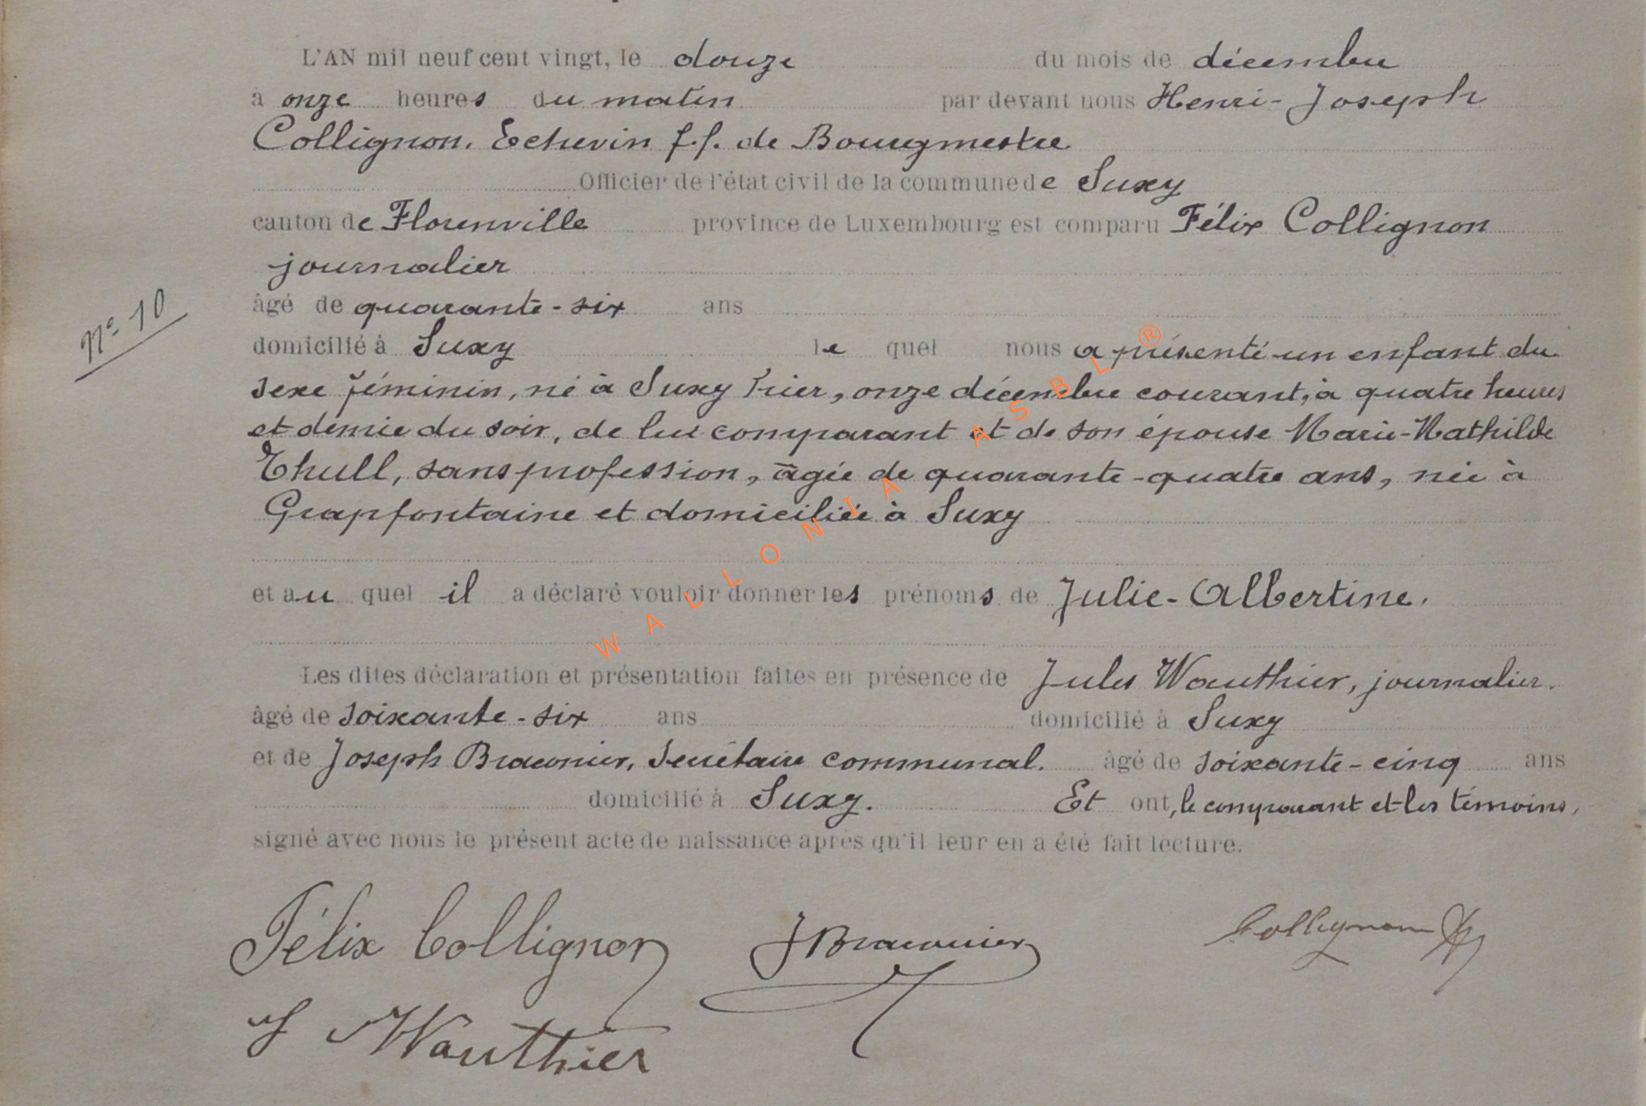 L'AN mil neuf cent vingt, le douze du mois de décembre
à onze heures du matin par devant nous Henri-Joseph
Collignon, Echevin f.f. de Bourgmestre
Officier de l'état civil de la commune de Suxy
canton de Florenville province de Luxembourg est comparu Félix Collignon
journalier
âgé de quarante-six ans
N° 10
domicilié à Suxy le quel nous a présenté un enfant du
sexe féminin, né à Suxy hier, onze décembre courant, à quatre heures
et demie du soir, de lui comparant et de son épouse Marie-Mathilde
Thull, sans profession, âgée de quarante-quatre ans, née à
Grapfontaine et domiciliée à Suxy
et au quel il a déclaré vouloir donner les prénoms de Julie-Albertine.
WALLONIA ASBL ®
Les dites déclaration et présentation faites en présence de Jules Wauthier, journalier.
âgé de soixante-six ans domicilié à Suxy
et de Joseph Braconnier, Secrétaire communal. âgé de soixante-cinq ans
domicilié à Suxy. Et ont, le comparant et les témoins,
signé avec nous le présent acte de naissance après qu'il leur en a été fait lecture.
Félix Collignon JBraconnier Collignon
J Wauthier